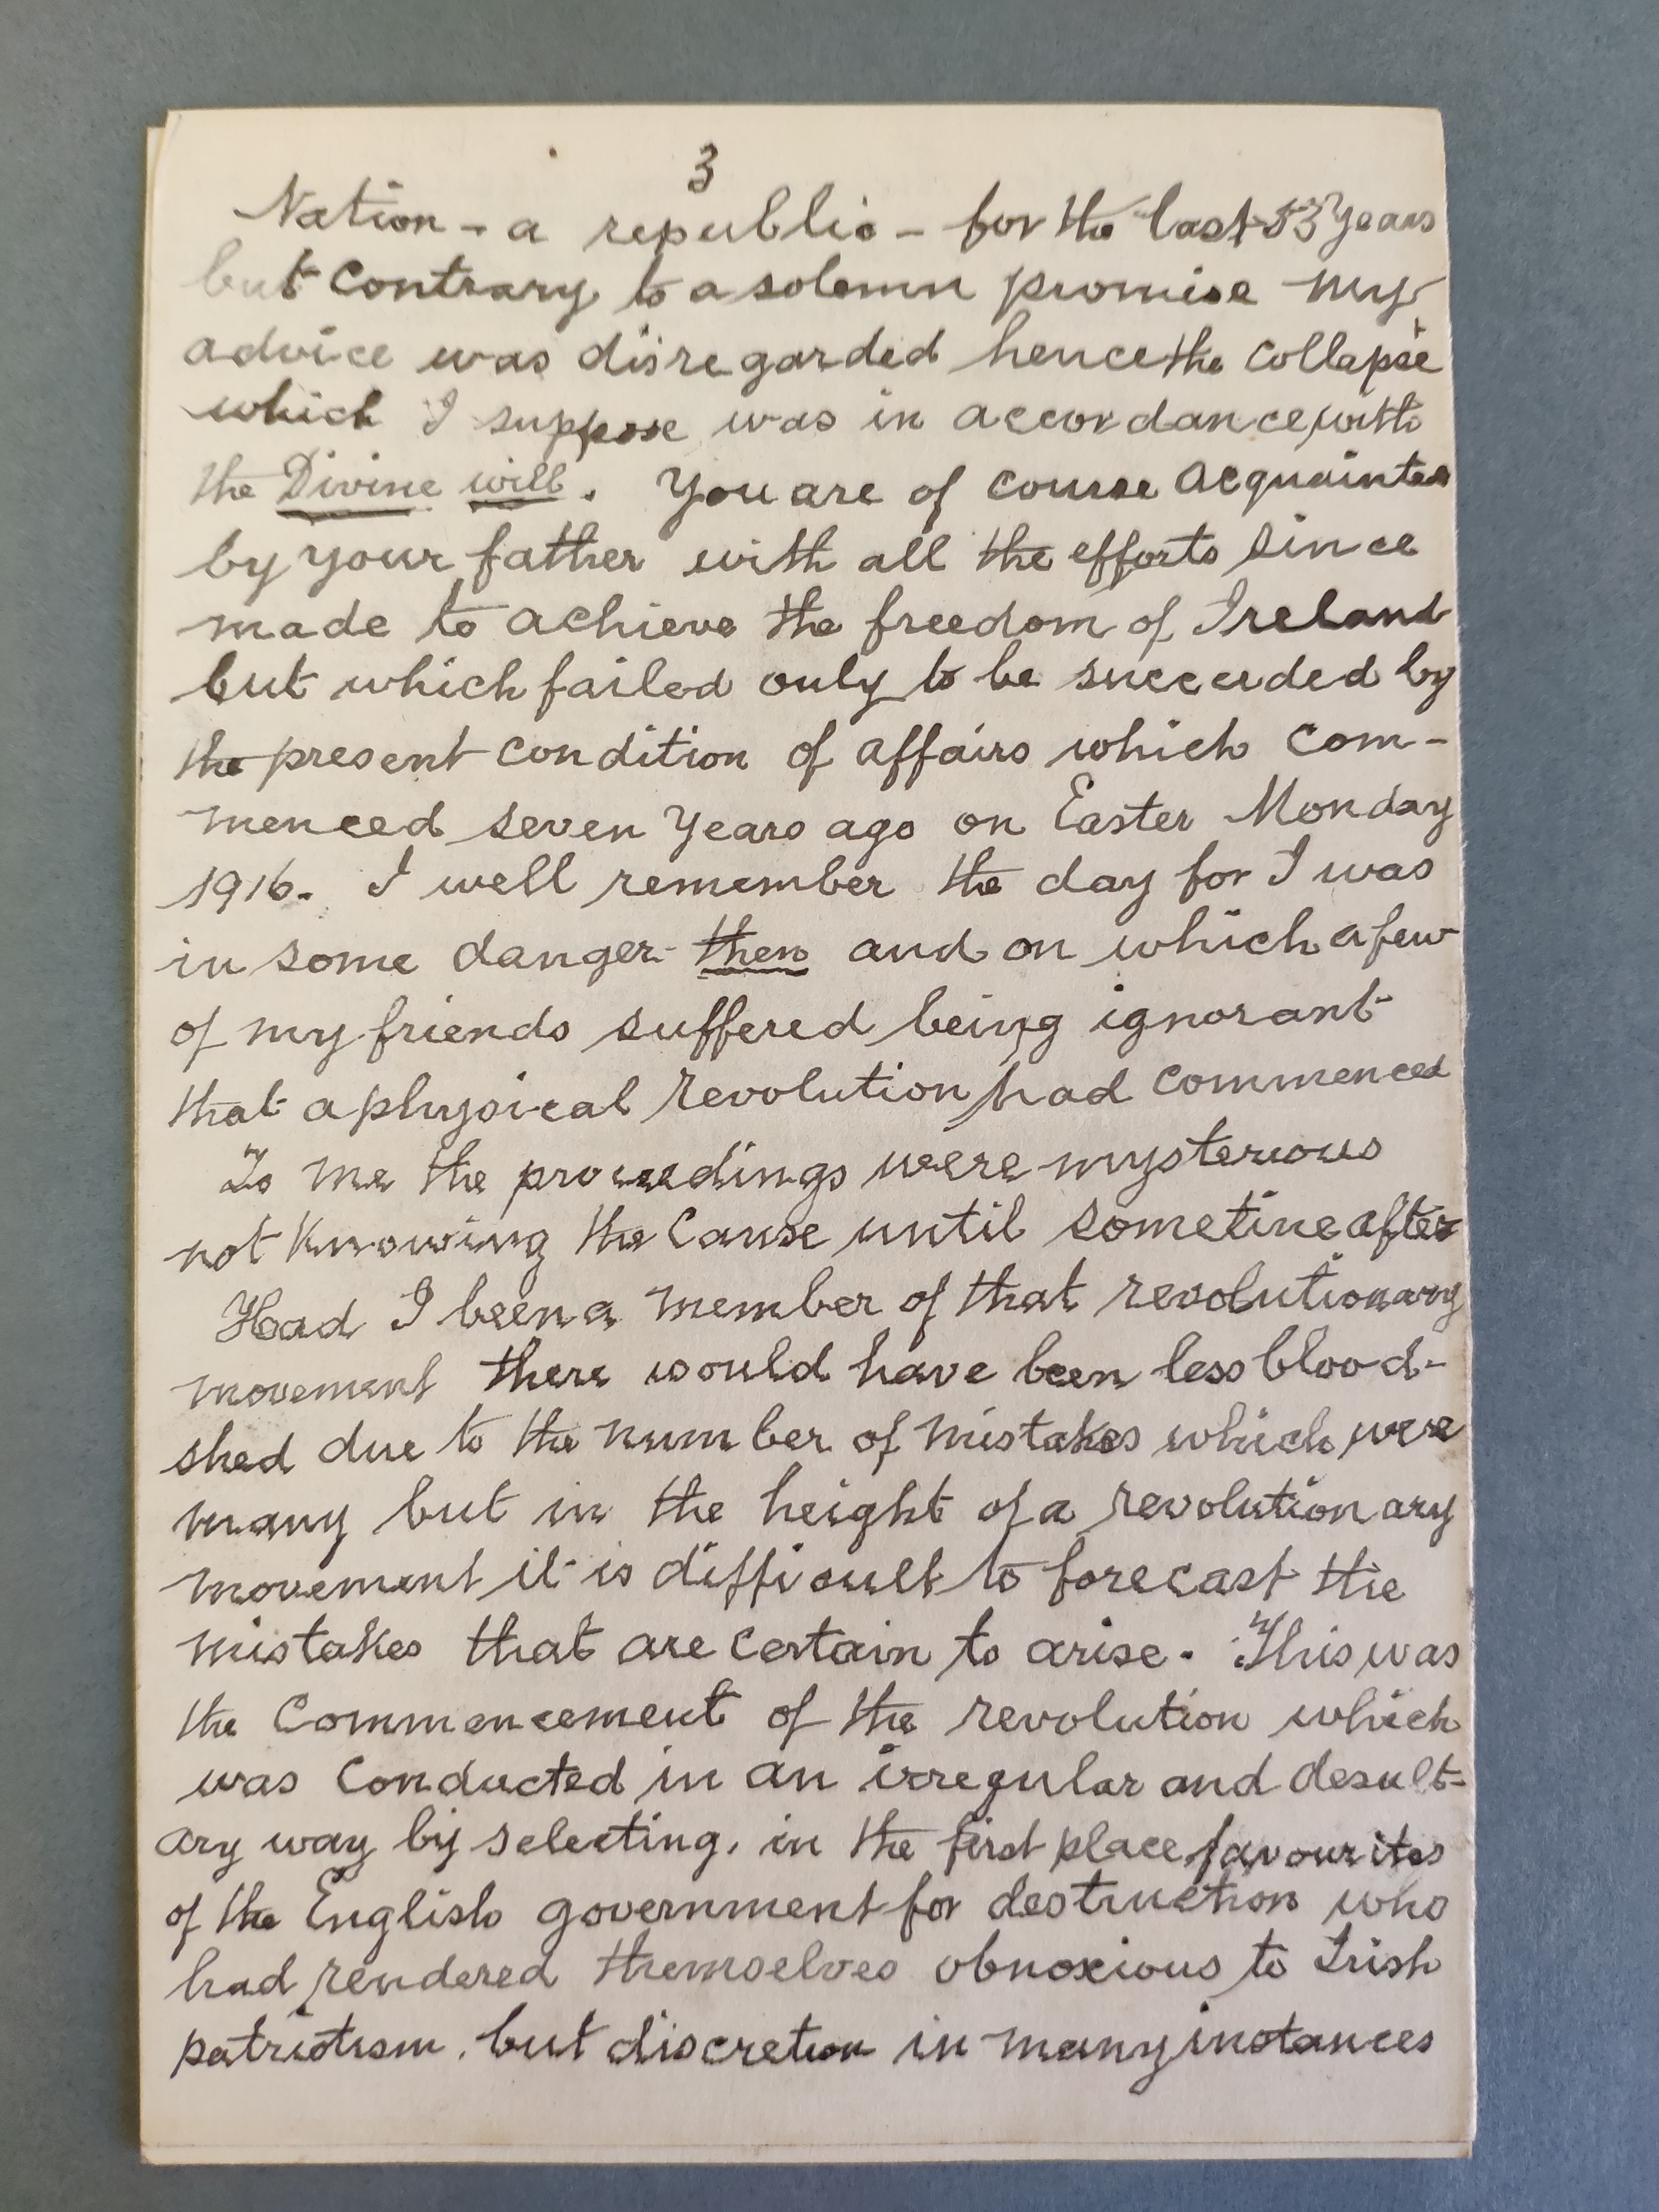 3
Nation - a republic - for the last 53 years
but contrary to a solemn promise my
advice was disregarded hence the collapse
which I suppose was in accordance with
the Divine will. You are of course acquainted
by your father with all the efforts since
made to achieve the freedom of Ireland
but which failed only to be succeeded by
the present condition of affairs which com-
menced seven years ago on Easter Monday
1916. I well remember the day for I was
in some danger then and on which a few
of my friends suffered being ignorant
that a physical revolution had commenced
To me the proceedings were mysterious
not knowing the cause until sometine after
Had I been a member of that revolutionary
movement there would have been less blood-
shed due to the number of mistakes which were
many but in the height of a revolutionary
movement it is difficult to forecast the
mistakes that are certain to arise. This was
the commencement of the revolution which
was conducted in an irregular and desult-
ary way by selecting, in the first place favourites
of the English government for destruction who
had rendered themselves obnoxious to Irish
patriotism, but discretion in many instances